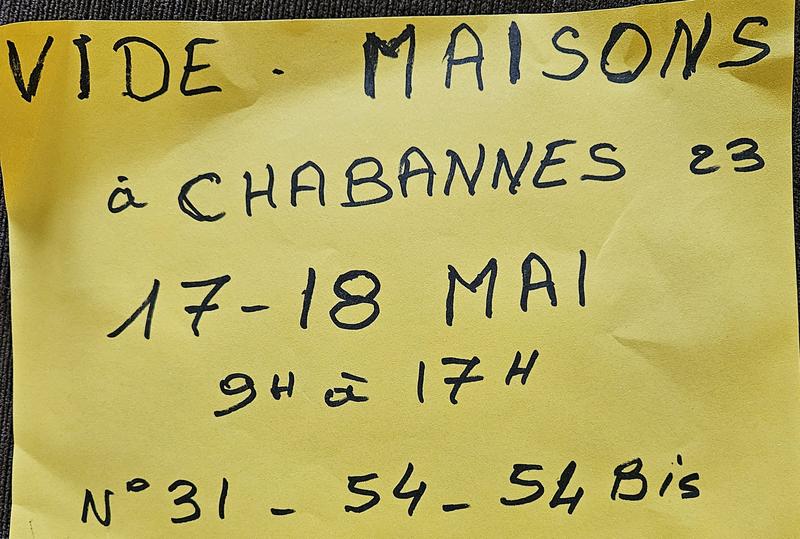 VIDE - MAISONS
à CHABANNES 23
17-18 MAI
9H à 17H
N° 31 - 54 - 54 Bis